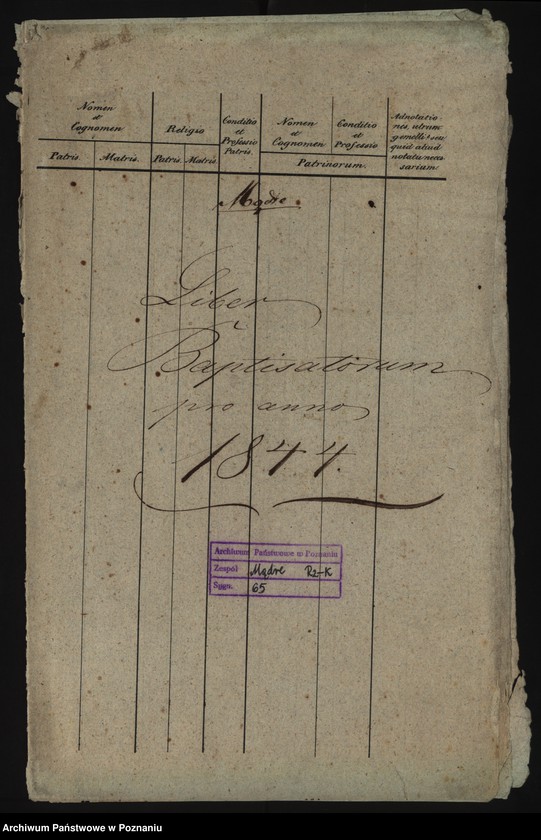 Nomen et Cognomen
Religio
Conditio et Professio Patris.
Nomen et Cognomen
Conditio et Professio
Adnotationes, utrum gemelli? seu quid aliud notatu necessarium.
Patris.
Matris.
Patris
Matris
Patrinorum.
Mądre
Liber
Baptisatorum
pro anno
1844.
Archiwum Państwowe w Poznaniu
Zespół Mądre Rz-K
Sygn. 65
Archiwum Państwowe w Poznaniu